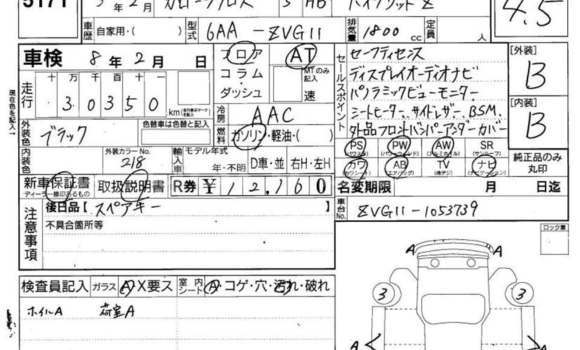 5171 5年2月 カローラクロス 5 HB ハイブリッド Z 4.5
車歴 自家用・( ) 型式 6AA-ZVG11 排気量 1800 cc 定員 人
車検 8年2月 日
フロア AT
コラム・ダッシュ MTのみ記入 速
走行 十万千百十 30350 km
冷房 AAC
燃料 ガソリン・軽油・( )
外装色 ブラック 色替車は色替と記入
内装色 外装カラーNo. 218
輸入車 モデル年式 年・不明 D車・並 右H・左H
セールスポイント
セーフティセンス
ディスプレイオーディオナビ
パノラミックビューモニター
シートヒーター、サイドレザー、BSM、
外品フロントバンパーアンダーカバー
[外装] B
[内装] B
PS PW AW SR
カワ AB TV ナビ
純正品のみ丸印
新車保証書 取扱説明書 R券 ¥12,160 名変期限 月 日迄
注意事項
後日品〔スペアキー
不具合箇所等
車台No. ZVG11-1053739
ロック東
検査員記入 ガラス A・X要ス 室内シート A・コゲ・穴・汚れ・破れ
ホイルA 荷室A
A A
3 3
A A